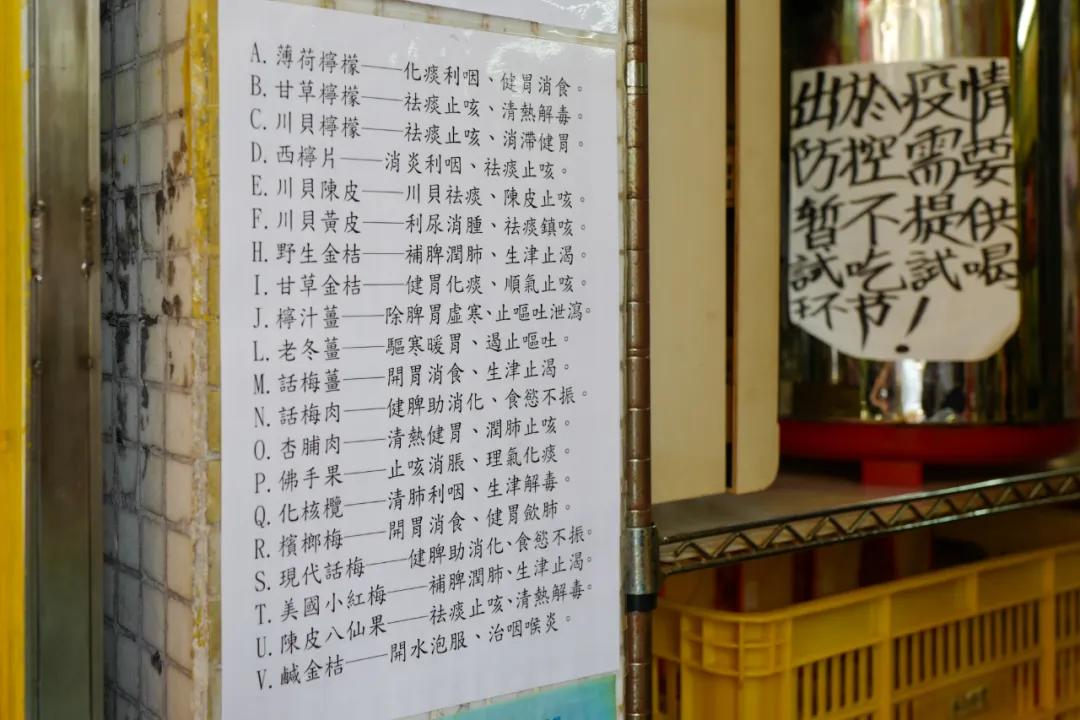 A. 薄荷檸檬——化痰利咽、健胃消食。
B. 甘草檸檬——祛痰止咳、清熱解毒。
C. 川貝檸檬——祛痰止咳、消滯健胃。
D. 西檸片——消炎利咽、祛痰止咳。
E. 川貝陳皮——川貝祛痰、陳皮止咳。
F. 川貝黃皮——利尿消腫、祛痰鎮咳。
H. 野生金桔——補脾潤肺、生津止渴。
I. 甘草金桔——健胃化痰、順氣止咳。
J. 檸汁薑——除脾胃虛寒、止嘔吐泄瀉。
L. 老冬薑——驅寒暖胃、遏止嘔吐。
M. 話梅薑——開胃消食、生津止渴。
N. 話梅肉——健脾助消化、食慾不振。
O. 杏脯肉——清熱健胃、潤肺止咳。
P. 佛手果——止咳消脹、理氣化痰。
Q. 化核欖——清肺利咽、生津解毒。
R. 檳榔梅——開胃消食、健胃飲肺。
S. 現代話梅——健脾助消化、食慾不振。
T. 美國小紅梅——補脾潤肺、生津止渴。
U. 陳皮八仙果——祛痰止咳、清熱解毒。
V. 鹹金桔——開水泡服、治咽喉炎。
出於疫情
防控需要
暫不提供
試吃試喝
环节！